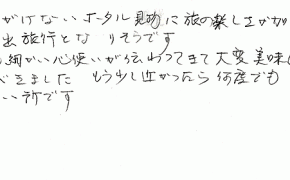 がけないホタル見物に旅の楽しさが加
出旅行となりそうです
細かい心使いが伝わってきて大変美味し
できました もう少し近かったら何度でも
い所です